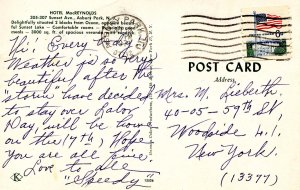 HOTEL MacREYNOLDS
305-307 Sunset Ave., Asbury Park, N. J.
Delightfully situated 2 blocks from Ocean,
Sunset Lake - Comfortable rooms -
meals - 3000 sq. ft. of spacious verandas
Hi! Every
Weather is so very
beautiful after the
"storm" have decided
to stay over Labor
Day, will be home
on the (7th) Hope
you are all fine.
Love to all
"Speedy"
K
POST CARD
Address
Mrs. M. Lieberth
40-05-59th St
Woodside L.I.
New York.
(13377)
6c